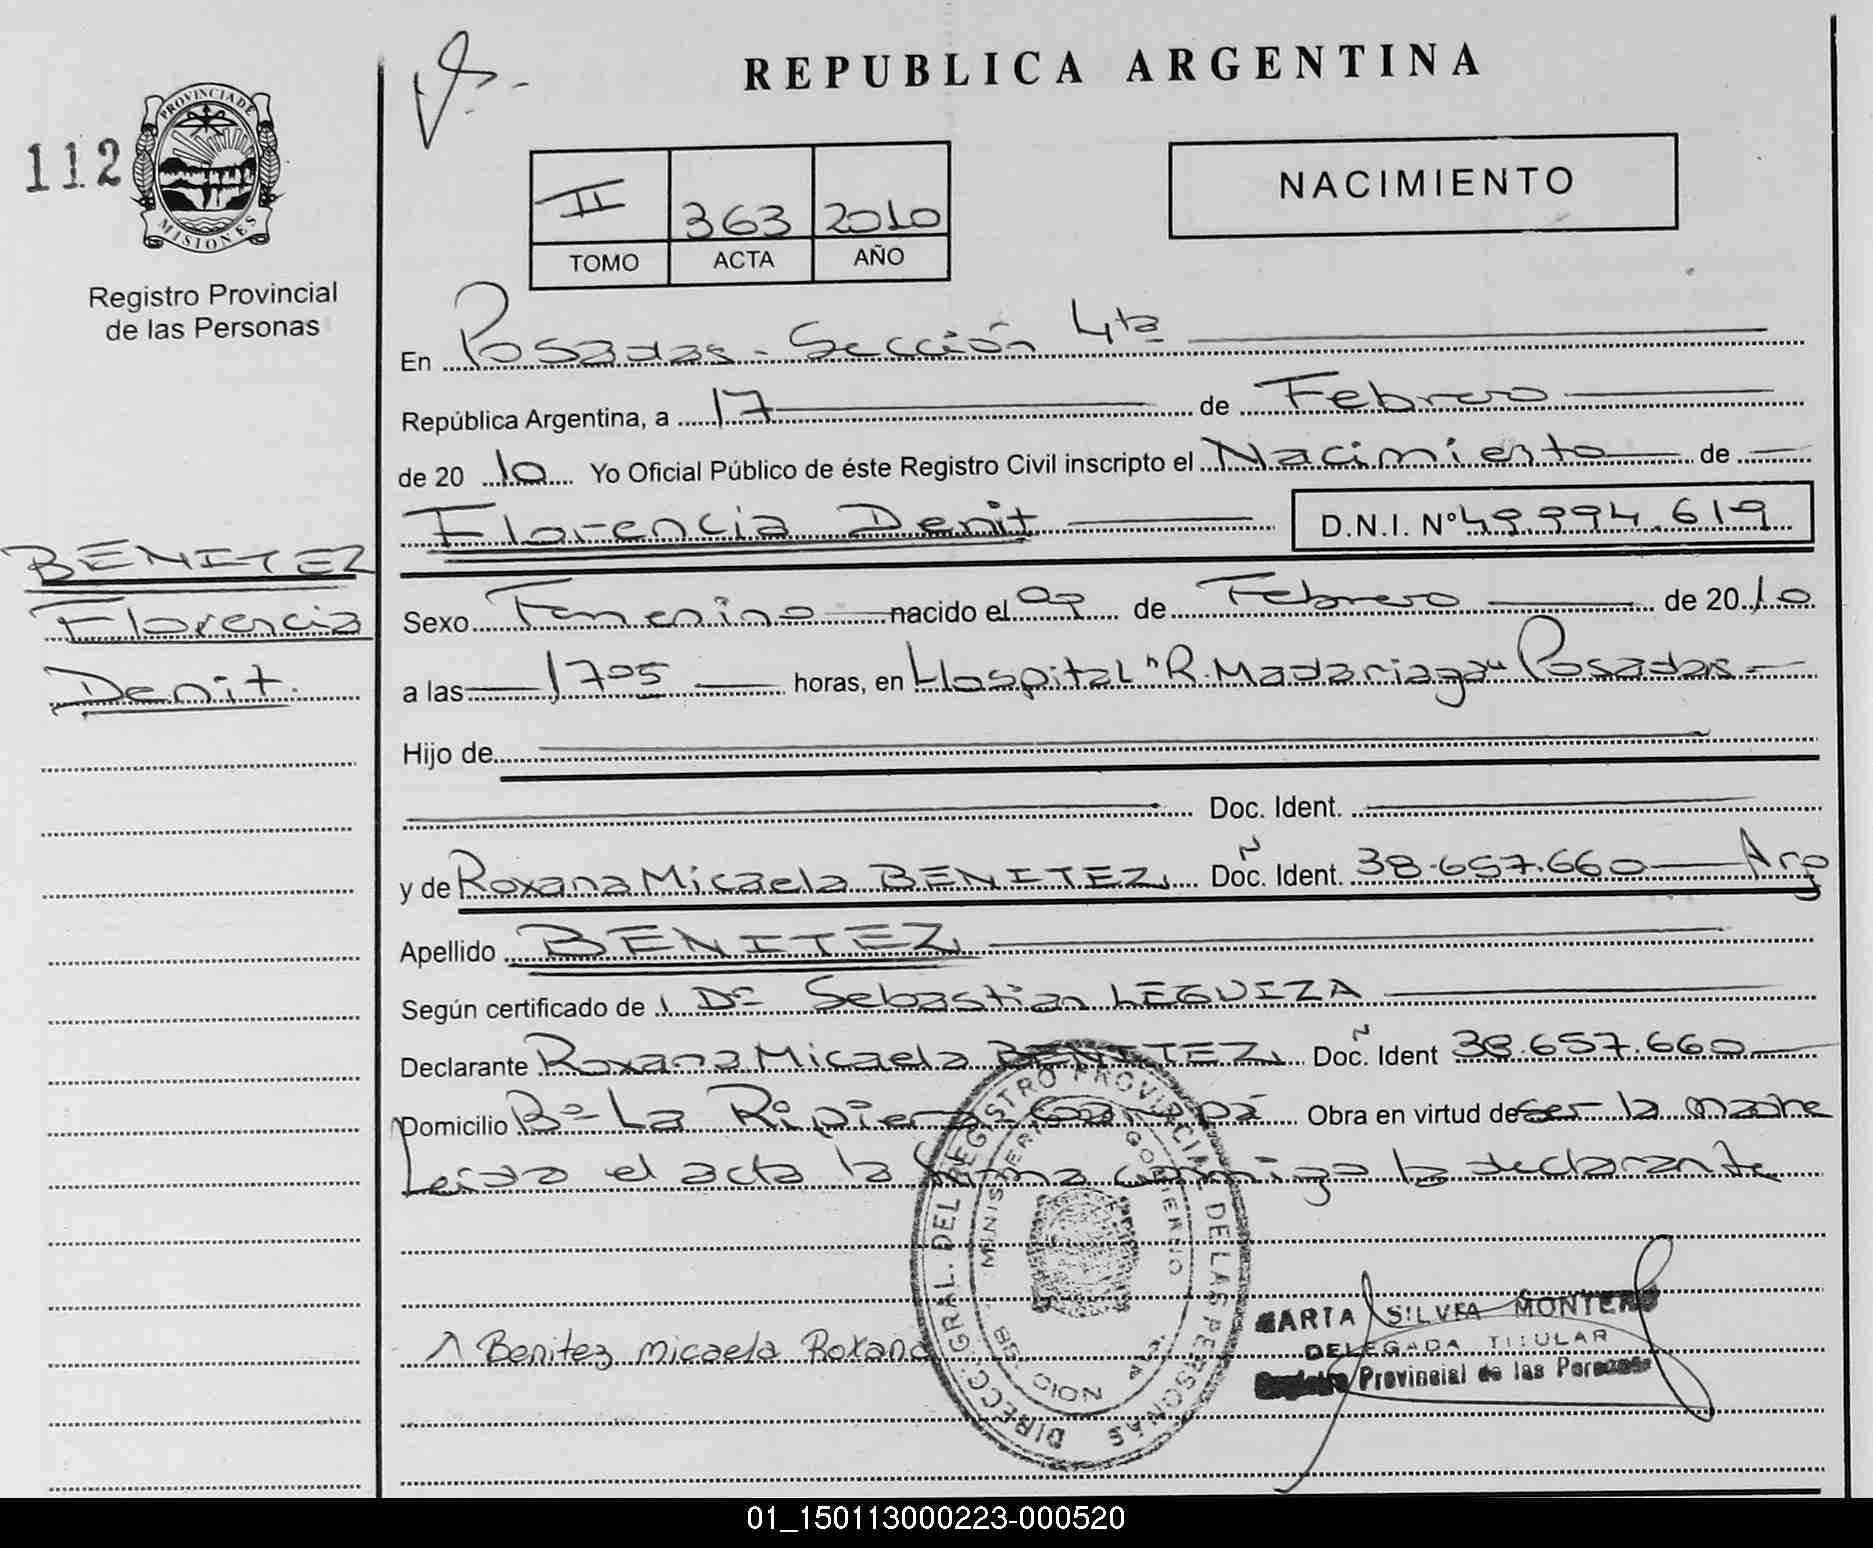 REPUBLICA ARGENTINA
112
PROVINCIA DE
MISIONES
Registro Provincial
de las Personas
NACIMIENTO
II 363 2010
TOMO ACTA AÑO
En Posadas - Sección 4ta
República Argentina, a 17 de Febrero
de 20 10 Yo Oficial Público de éste Registro Civil inscripto el Nacimiento de
Florencia Denit D.N.I. Nº 49.994.619
BENITEZ
Florencia
Denit.
Sexo Femenino nacido el 09 de Febrero de 20 10
a las 1705 horas, en Hospital "R. Madariaga" Posadas
Hijo de
Doc. Ident.
y de Roxana Micaela BENITEZ Doc. Ident. 38.657.660 Arg
Apellido BENITEZ
Según certificado de Dr Sebastian LEGUIZA
Declarante Roxana Micaela BENITEZ Doc. Ident 38.657.660
Domicilio Bº La Ripiera Garupá Obra en virtud de ser la madre
Leida el acta la firma conmigo la declarante
DIRECC. GRAL. DEL REGISTRO PROVINCIAL DE LAS PERSONAS
MINISTERIO GOBIERNO
Benitez micaela Roxana
MARTA SILVIA MONTERO
DELEGADA TITULAR
Registro Provincial de las Personas
01_150113000223-000520